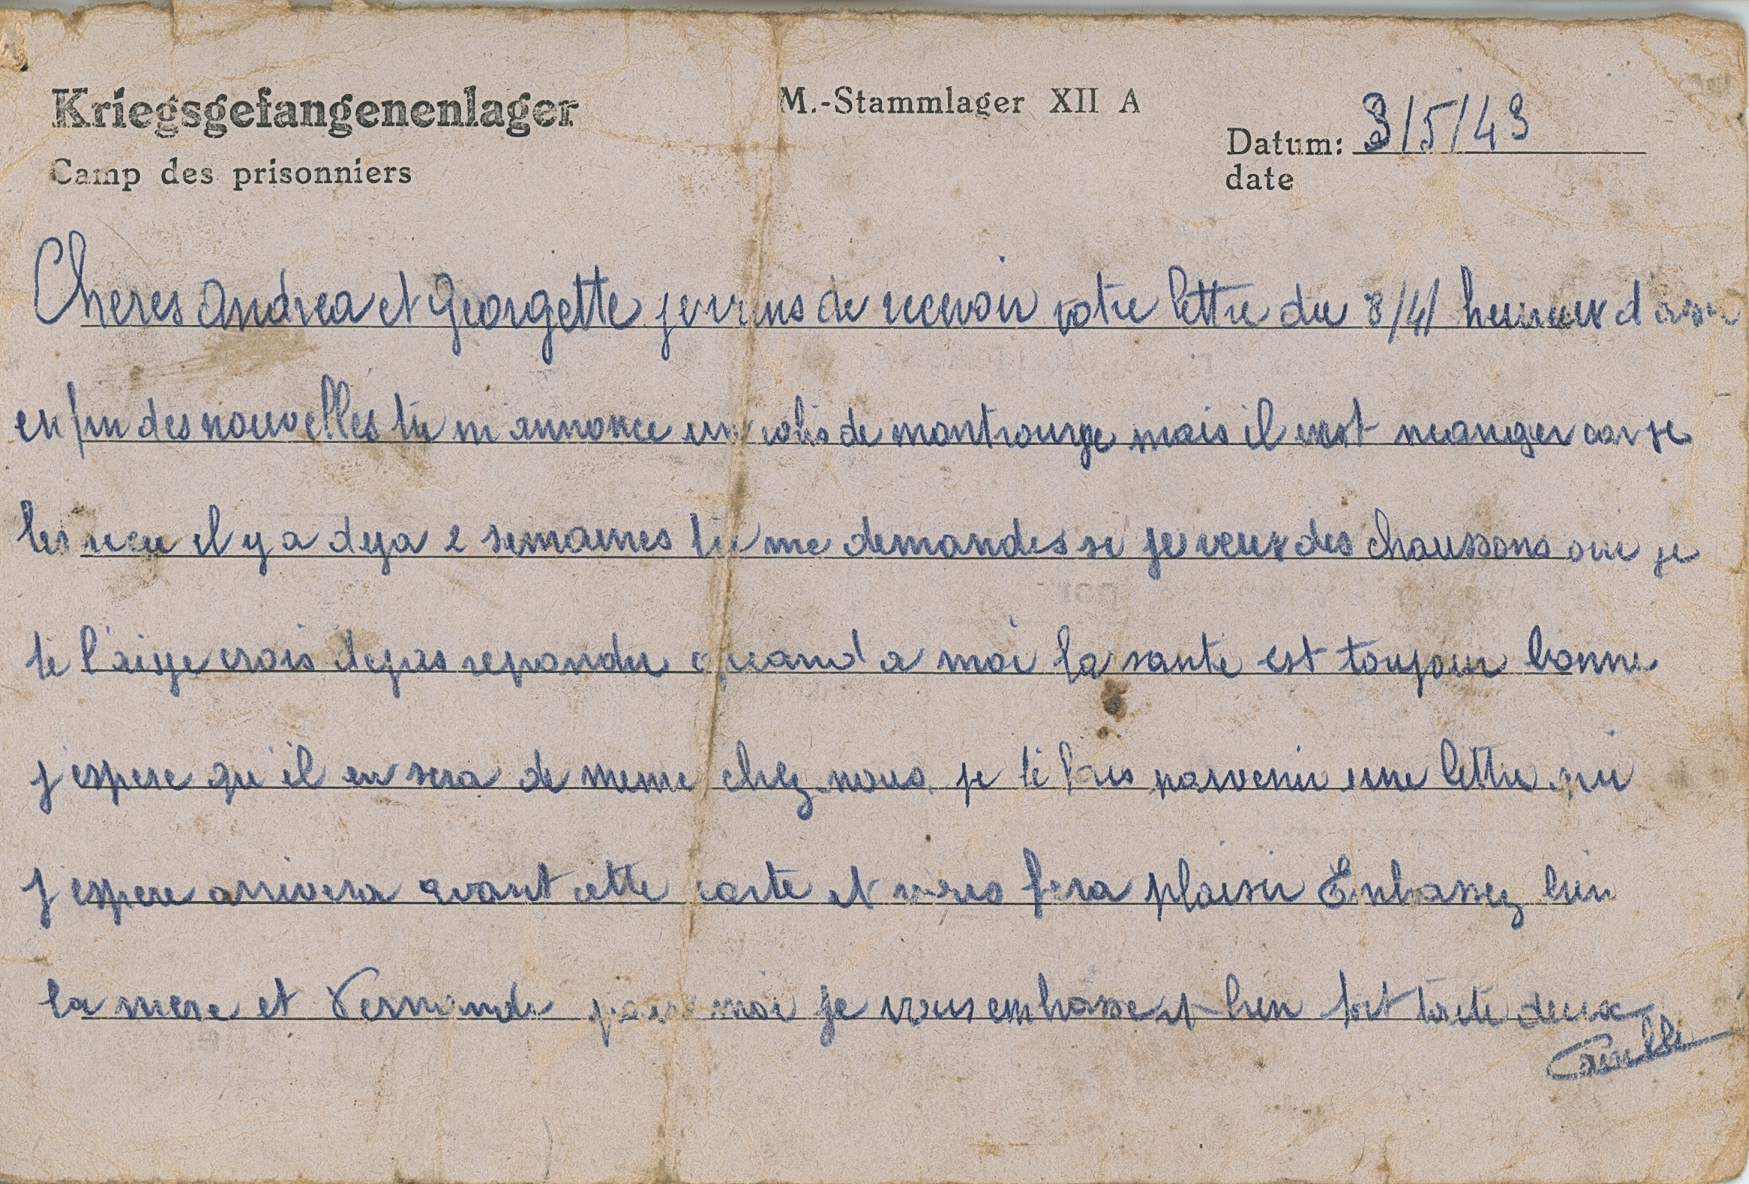 Kriegsgefangenenlager
M.-Stammlager XII A
Camp des prisonniers
Datum: 3/5/43
date
Cheres Andrea et Georgette je viens de recevoir votre lettre du 8/4/ heureux d avoir
enfin des nouvelles tu m annonce un colis de montrouge mais il est manger car je
les reçu il y a deja 2 semaines tu me demandes si je veux des chaussons oui je
te l'aige crois repondu quand a moi la sante est toujour bonne
j espere qu il en sera de meme chez nous je te fais parvenir une lettre qui
j espere arrivera avant cette carte et vous fera plaisir Embassez bien
la mere et pour moi je vous embasse bien fort toute deux
Camille